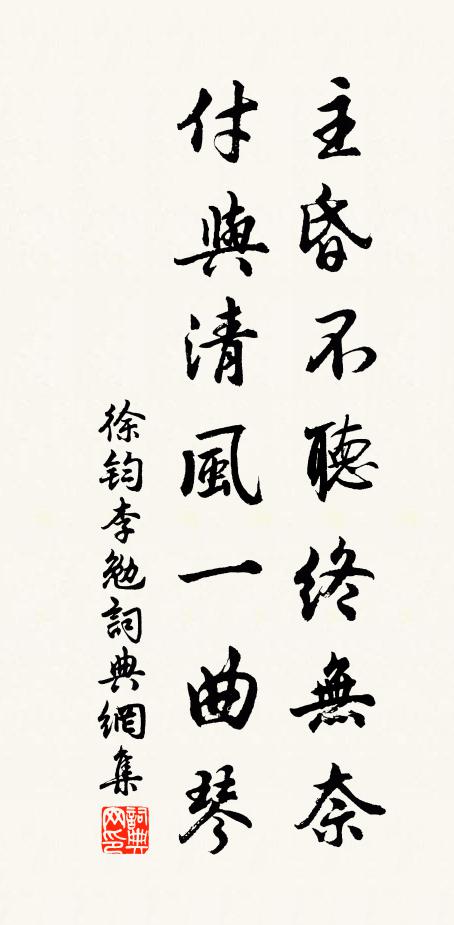 主昏不聽終無奈
付與清風一曲琴
徐鈞李勉詞典網集
詞典網印